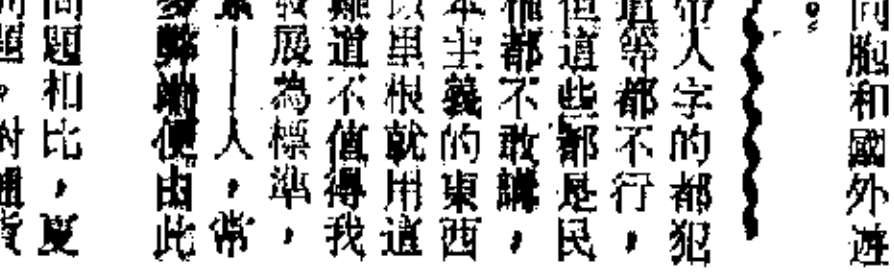 同胞和國外遊
。
帶人字的都犯
道等都不行，
但這些都是民
都不敢講，
本主義的東西
以里根就用這
難道不值得我
發展為標準，
——人，常
多弊端便由此
問題相比，度
題。對通貨